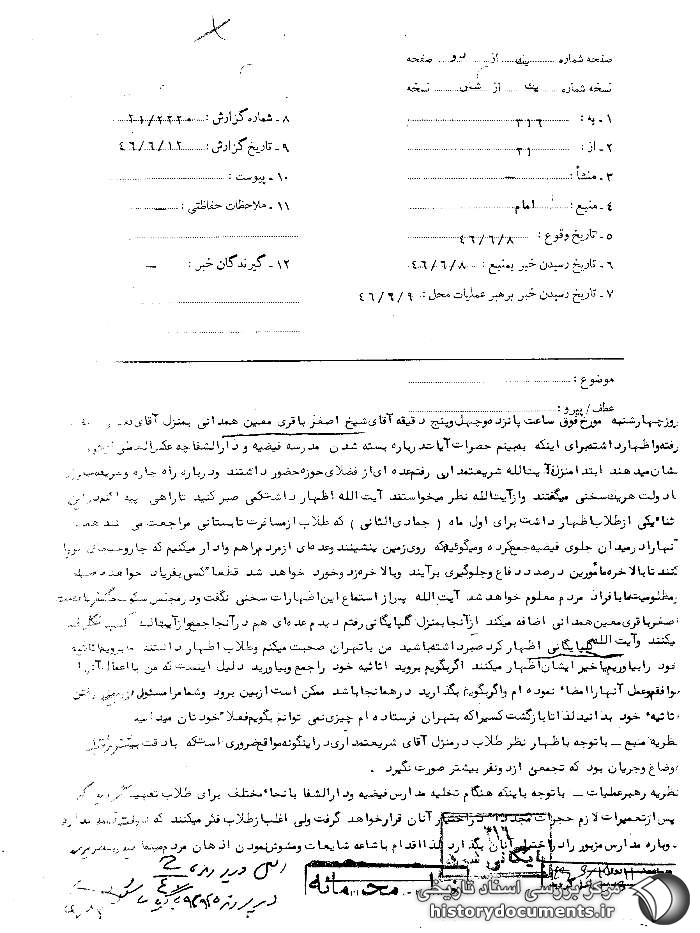 صفحه شماره یک از دو صفحه
نسخه شماره یک از شش نسخه
۱ـ به : ۳۱۶
۲ـ از : ۲۱
۳ـ منشأ : ـ
۴ـ منبع : امام
۵ـ تاریخ وقوع : ۴۶/۶/۸
۶ـ تاریخ رسیدن خبر بمنبع : ۴۶/۶/۸
۷ـ تاریخ رسیدن خبر برهبر عملیات محل : ۴۶/۶/۹
۸ـ شماره گزارش :
۹ـ تاریخ گزارش : ۴۶/۶/۱۲
۱۰ـ پیوست :
۱۱ـ ملاحظات حفاظتی : ـ
۱۲ـ گیرندگان خبر : ـ
موضوع :
عطف/ پیرو :
روز چهارشنبه مورخ فوق ساعت پانزده و چهل و پنج دقیقه آقای شیخ اصغر باقری معین همدانی بمنزل آقای
رفته و اظهار داشته برای اینکه به بینم حضرات آیات درباره بسته شدن مدرسه فیضیه و دارالشفا چه عکس العملی
نشان میدهند ابتدا منزل آیت الله شریعتمداری رفتم عده ای از فضلای حوزه حضور داشتند و درباره راه چاره و
با دولت هریک سخنی میگفتند و از آیت الله نظر میخواستند آیت الله اظهار داشت کمی صبر کنید تا راهی پیدا کنم در این
اثنا یکی از طلاب اظهار داشت برای اول ماه ( جمادی الثانی ) که طلاب از مسافرت تابستانی مراجعت می کنند همه
آنها را در میدان جلوی فیضیه جمع کرده و میگوئیم که روی زمین بنشینند و عده ای از مردم را هم وادار میکنیم که
کنند تا بالاخره مأمورین درصدد دفاع و جلوگیری برآیند و بالاخره زد و خورد خواهد شد قطعا کسی بفریاد خواهد رسید
و مظلومیت ما بافراد مردم معلوم خواهد شد آیت الله پس از استماع این اظهارات سخنی نگفت و در مجلس سکوت
اصغر باقری معین همدانی اضافه میکند از آنجا بمنزل گلپایگانی رفتم دیدم عده ای هم در آنجا جمع و از آیت الله کسب تکلیف
میکنند و آیت الله گلپایگانی اظهار کرد صبر داشته باشید من با تهران صحبت میکنم و طلاب اظهار داشتند ما برویم اثاثیه
خود را بیاوریم یا خیر ایشان اظهار میکنند اگر بگویم بروید اثاثیه خود را جمع و بیاورید دلیل اینست که من با اعمال آنها
موافقم و عمل آنها را امضاء نموده ام و اگر بگویم بگذارید در همانجا باشد ممکن است از بین برود و شما مرا مسئول از بین رفتن
اثاثیه خود بدانید لذا تا بازگشت کسی را که بتهران فرستاده ام چیزی نمی توانم بگویم فعلا خودتان میدانید
نظریه منبع ـ با توجه باظهار نظر طلاب در منزل آقای شریعتمداری در اینگونه مواقع ضروری است که با دقت بیشتر مراقب
اوضاع و جریان بود که تجمعی از دو نفر بیشتر صورت نگیرد .
نظریه رهبر عملیات ـ با توجه باینکه هنگام تخلیه مدارس فیضیه و دارالشفا بانحاء مختلف برای طلاب تفهیم گردیده که
پس از تعمیرات لازم حجرات مجددا در اختیار آنان قرار خواهد گرفت ولی اغلب طلاب فکر میکنند که دولت قصد ندارد
دوباره مدارس مزبور را در اختیار آنان بگذارد لذا اقدام باشاعه شایعات و مشوش نمودن اذهان مردم مینمایند
۳۱۶
بایگانی
خیلی محرمانه
مرکز بررسی اسناد تاریخی
historydocuments.ir